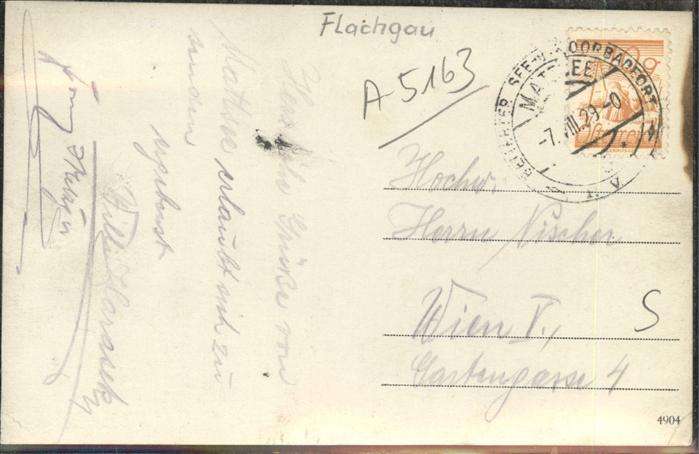 Flachgau
A 5163
MATTSEE
-7.VIII.29.-0
Herzliche Grüsse von
Mattsee erlaubt sich zu
senden
ergebenst
Willi
Hochw.
Herrn Nischer
Wien V.,
Gartengasse 4
S
4904